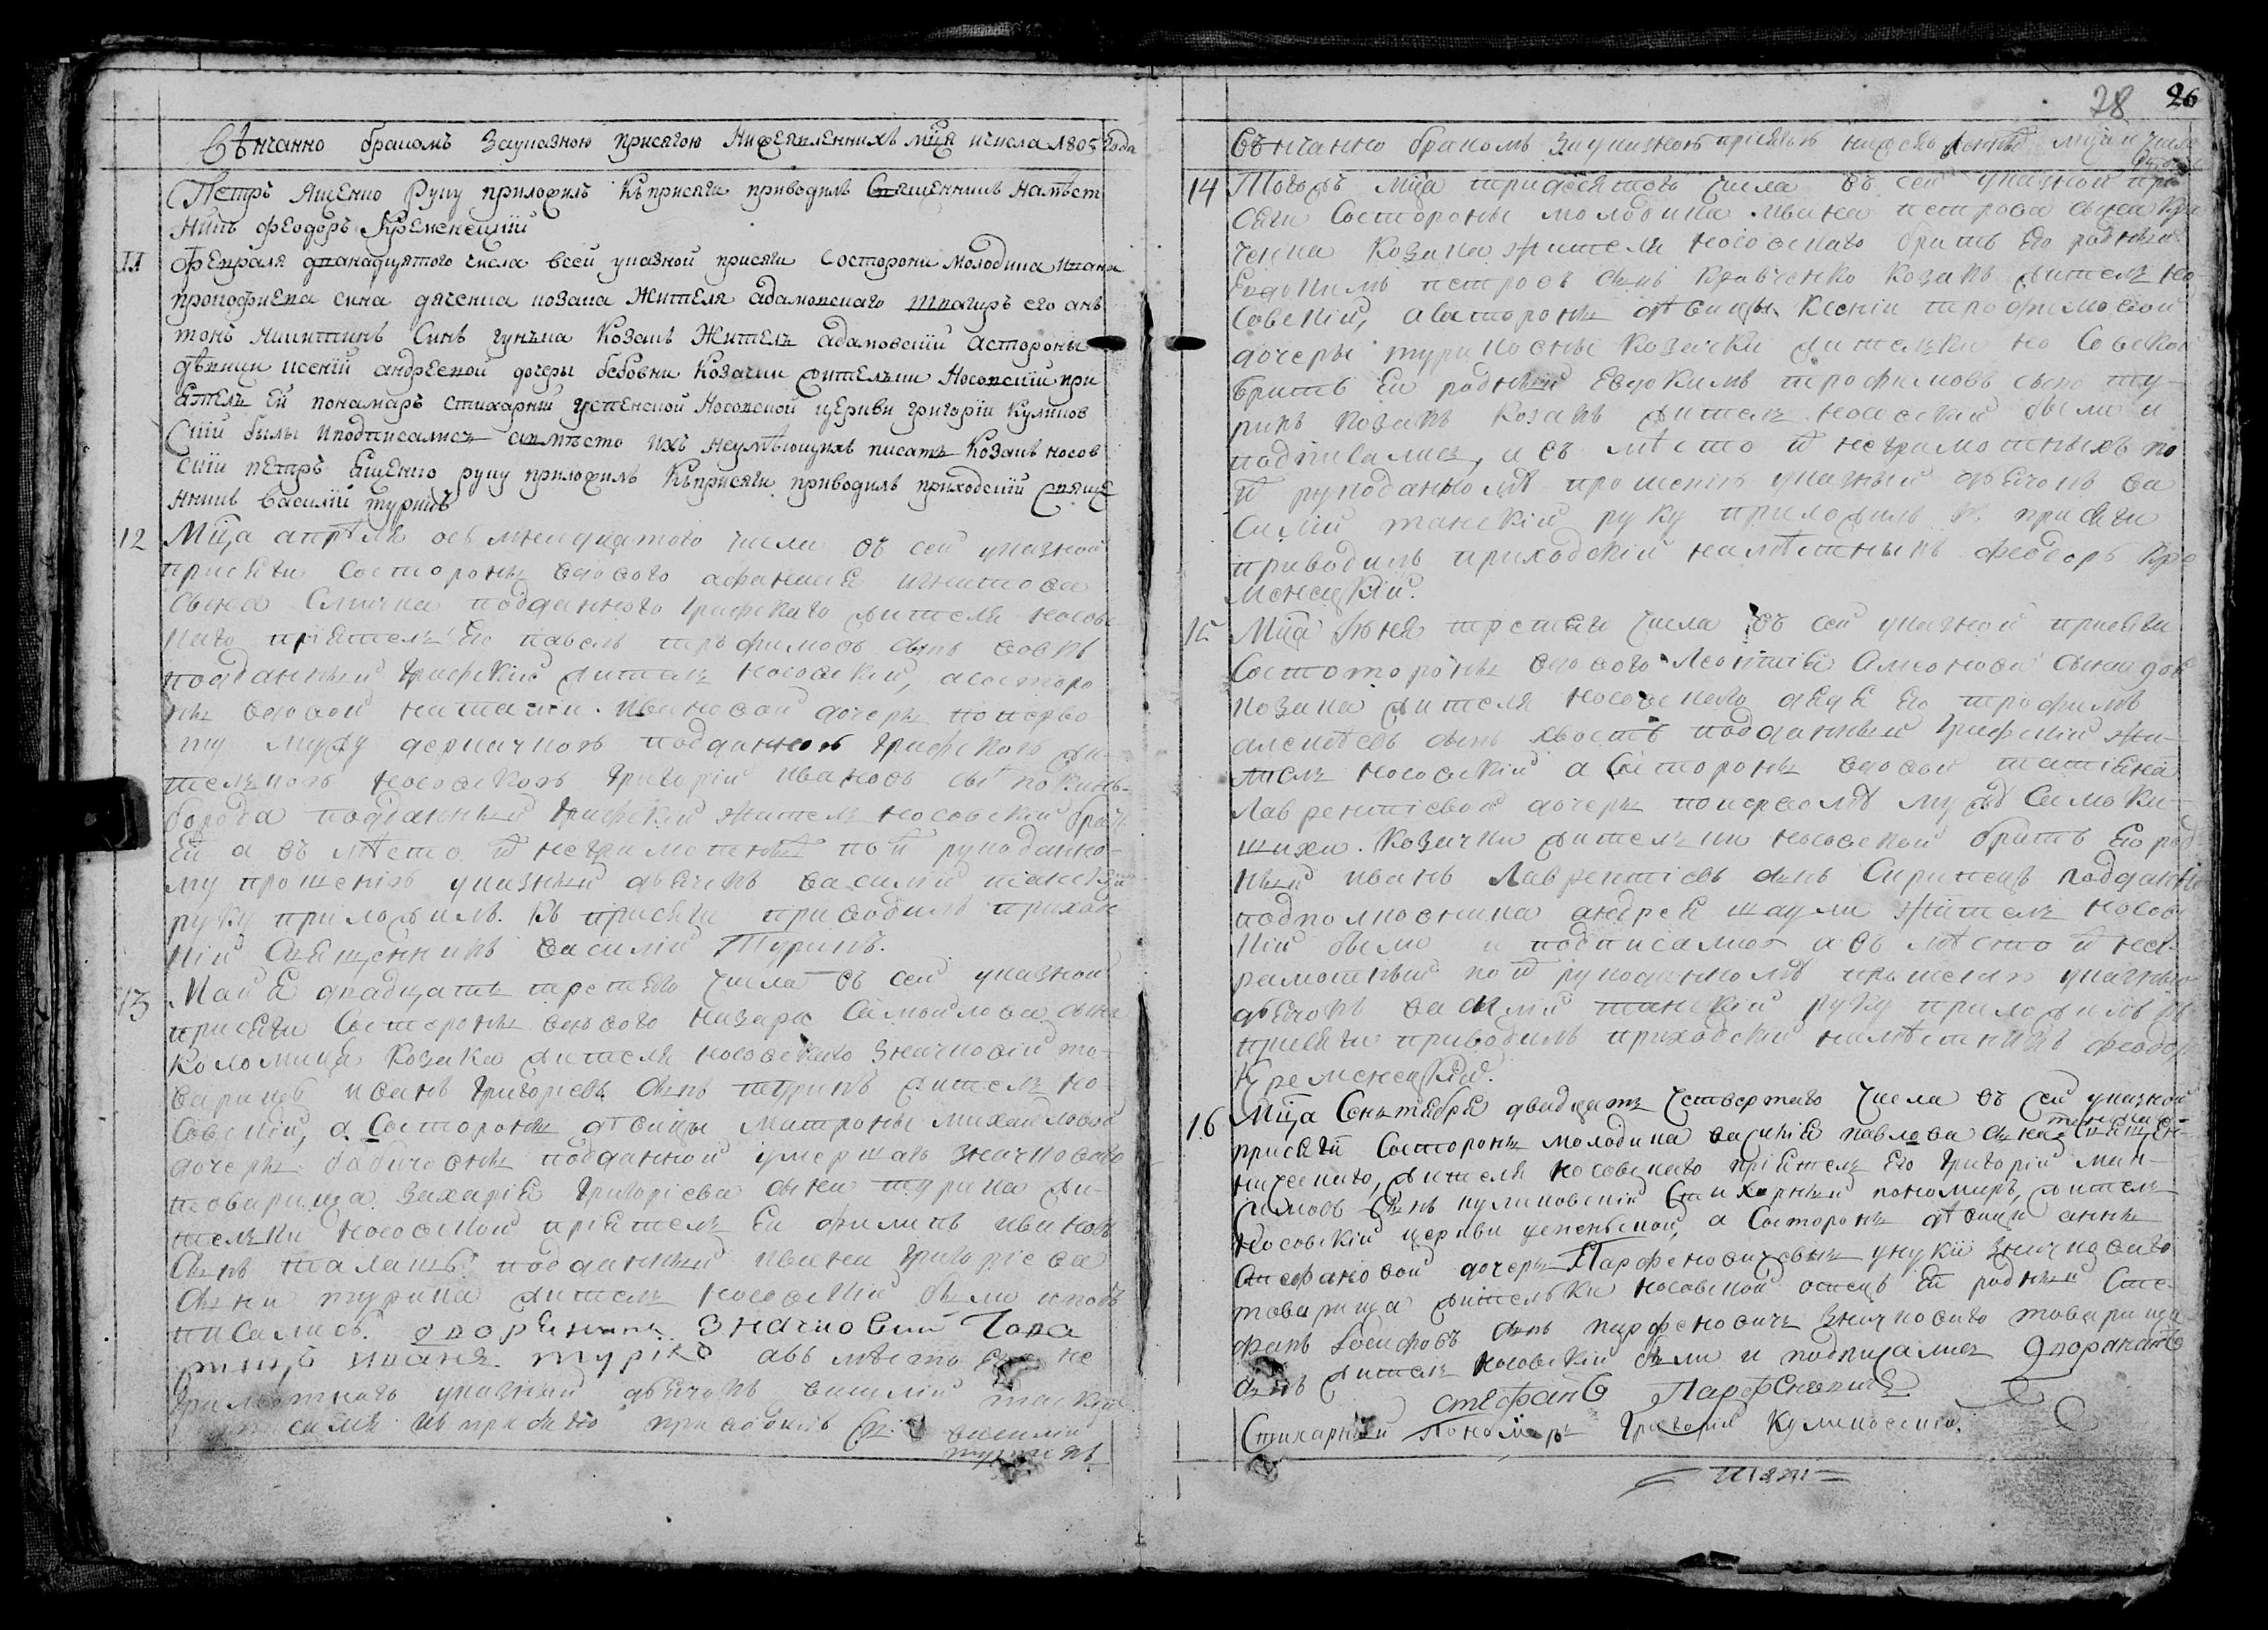 Вѣнчанно бракомъ Зауказною присягою Нижеявленнихъ мѣця ичисла 1805 года
Петръ Ященко Руку приложилъ Къприсяги приводилъ Священникъ Намѣст
никъ Феодоръ Кременецкій
11 Февраля дванадцятого числа всей указной присяги Состорони Молодика Ивана
прокофиева сина дяченка козака Жителя адамовскаго швагиръ его анъ
тонъ никитинъ Синъ гунъка Козакъ Жителъ адамовскій асторони
дѣвици ксеній андреевой дочери бебовни Козачки жителъки Носовскій при
ятелъ ей понамаръ стихарній успенской Носовской церкви григорій Кулинов
скій былы иподписалисъ авмѣсто ихъ неумѣющихъ писатъ Козакъ носов
скій петръ ященко руку приложилъ Къприсяги приводилъ приходскій свяще
нникъ василій турикъ
12 Мца апрѣля осьмнацатого числа въ сей указной
присяги состороны вдового афанасия игнатова
сына Слички подданного Графского жителя носовс
каго пріятель его павелъ трофимовъ сынъ вовкъ
подданный Графскій житель носовскій, а состоро
ны вдовой наталіи Ивановой дочеры поперво
му мужу деркачковъ подданной Графской жи-
телъкою носовскою Григорій Ивановъ сы покинь-
борода подданный Графскій житель носовскій братъ
ей а въ мѣсто их неграмотныхъ по их рукоданно-
му прошенію указный дьячокъ василій танскій
руку приложилъ. къ присяги приводилъ приход
кій священникъ василій Турикъ.
13 Маия двадцать третяго числа въ сей указной
присяги состороны вдового назара Самойлова сына
коломийця козака жителя носовскаго значковій то-
варищъ иванъ Григориевъ сынъ турикъ житель но-
совскій, а состороны дѣвицы матроны михайловой
дочеры бабичовны подданной умершаго значковаго
товарища захария Григориева сына турика жи-
тельки носовской пріятель ей филипъ ивановъ
сынъ талашъ подданный ивана Григориева
сына турика житель носовскій были ипод
писались. дворянинъ значковий Това
рищъ иванъ туріко авъ мѣсто не
грамотнаго указный дьячокъ василій танскій
къ присяги приводилъ василій
турикъ
28 26
Вѣнчанно бракомъ зауказною присягою нижеявленныхъ мѣца и числа
14 Тогожъ мѣца тридесятого числа въ сей указной при
сяги состороны молодика ивана петрова сына кра
ченка козака жителя носовскаго братъ его родный
Евдокимъ петровъ сынъ кравченко козакъ житель но-
совскій, а состороны дѣвицы ксеніи трофимовой
дочеры туриковны козачки жительки но совской
братъ ей родный Евдокимъ трофимовъ сынъ ту-
рикъ козакъ козакъ житель носовскій были и
подписались, а въ мѣсто их неграмотныхъ по
их рукоданному прошенію указный дьячокъ ва
силій танскій руку приложилъ к присяги
приводилъ приходскій намѣстникъ феодоръ кре
менецкій.
15 Мца Июня третяго числа въ сей указной присяги
состороны вдового Леонтія Самойлова сына
козака жителя носовскаго дядя его трофимъ
алексѣевъ сынъ хвостъ подданный графскій жи-
тель носовскій а состороны вдовой татіяны
Лаврентіевой дочеры поперво́му мужу Симоки-
шихи. козачки жительки носовской братъ ею род
ный иванъ Лаврентіевъ сынъ Скрипецъ подданный
подполковника андрея шаули житель носовс
кій были и подписались а въ мѣсто их негра
рамотный по их рукоданному прошенію указный
дьячокъ василій танскій руку приложилъ къ
присяги приводилъ приходскій намѣстникъ феодоръ
кременецкій.
16 Мца Сентября двадцать четвертаго числа въ сей указной
присяги состороны молодика василія павлова сына священ-
ническаго, жителя носовскаго пріятель его Григорій мак-
симовъ сынъ кулиновскій стихарный пономаръ, житель
носовскій церкви успенской, а состороны дѣвици анны
стефановой дочеры Парфеновичевны унукы значковаго
товарища жительки носовской отецъ ей родный Сте-
фанъ Іосифовъ сынъ парфеновичъ значковаго товарища
сынъ житель носовскій были и подписались Дворанинъ
стефанъ Парфеновичъ
Стихарный Пономаръ Григорій Кулиновскій.